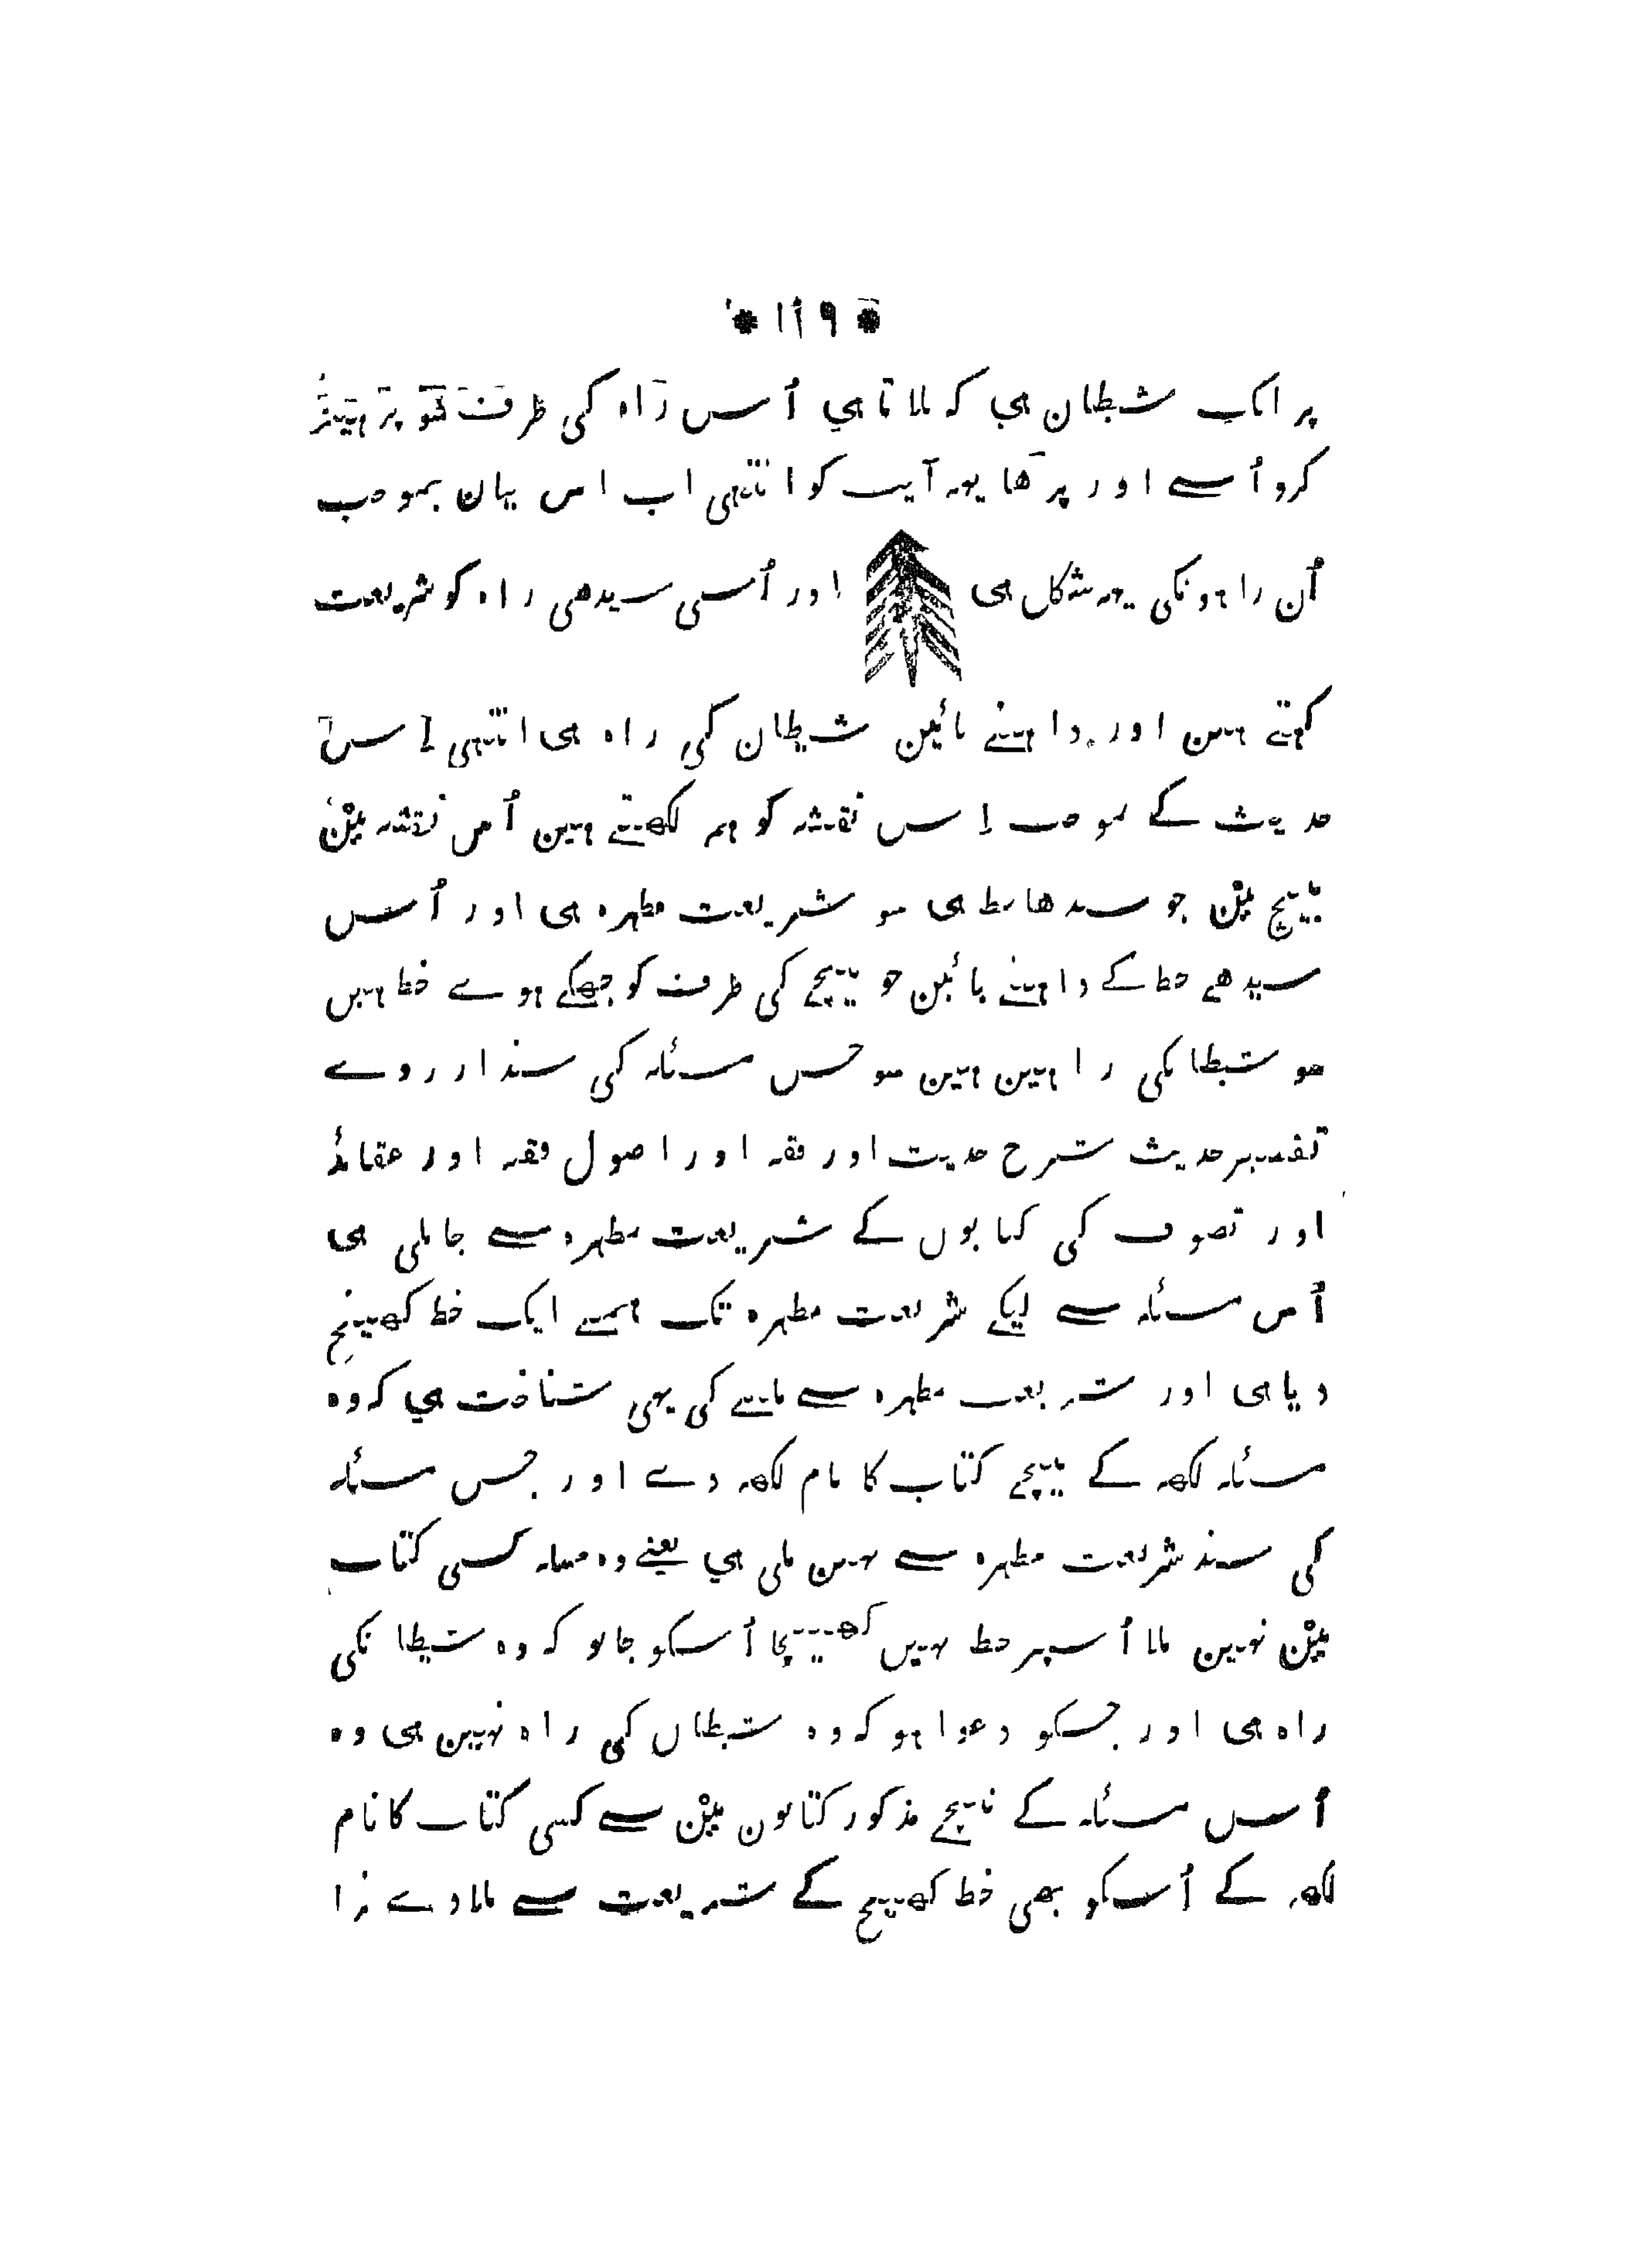 * ۱۱۹ *
پر ایک شیطان هی که بلاتا هی اُس راه کی طرف سو پرهیز
کرو اُسے اور پڑها یهه آیت کو انتهی اب اس بیان بموجب
اُن راهونکی یهه شکل هی اور اُسی سیدهی راه کو شریعت
کهتے هین اور داهنے بائین شیطان کی راه هی انتهی اِس
حدیث کے بموجب اِس نقشه کو هم لکھتے هین اُس نقشه مین
بیچ مین جو سیدها خط هی سو شریعت مطهره هی اور اُس
سیدهے خط کے داهنے بائین جو نیچے کی طرف کو جھکے هوے خط هین
سو شیطانکی راهین هین سو جس مسئله کی سند از روے
تفسیر حدیث شرح حدیث اور فقه اور اصول فقه اور عقائد
اور تصوف کی کتابوں کے شریعت مطهره سے جا ملی هی
اُس مسئله سے لیکے شریعت مطهره تک همنے ایک خط کھینچ
دیا هی اور شریعت مطهره سے ملنے کی یهی شناخت هی که وه
مسئله لکھه کے نیچے کتاب کا نام لکھه دے اور جس مسئله
کی سند شریعت مطهره سے نهین ملی هی یعنے وه مسله کسی کتاب
مین نهین ملا اُسپر خط نهیں کھینچا اُسکو جانو که وه شیطانکی
راه هی اور جسکو دعوا هو که وه شیطاں کی راه نهین هی وه
اُس مسئله کے نیچے مذکور کتابون مین سے کسی کتاب کا نام
لکھه کے اُسکو بھی خط کھینچ کے شریعت سے ملا دے نرا